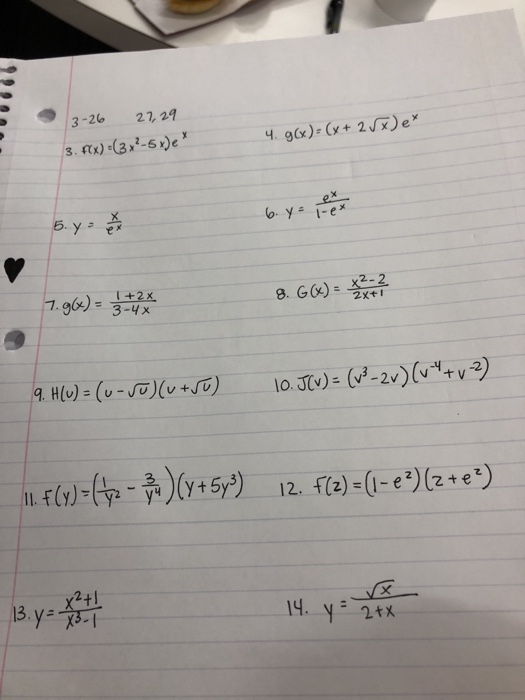 3-26 27, 29
3. f(x) = (3x²-5x)eˣ
4. g(x) = (x + 2√x)eˣ
5. y = x/eˣ
6. y = eˣ/(1-eˣ)
7. g(x) = (1+2x)/(3-4x)
8. G(x) = (x²-2)/(2x+1)
9. H(u) = (u-√u)(u+√u)
10. J(v) = (v³-2v)(v⁻⁴+v⁻²)
11. f(y) = (1/y² - 3/y⁴)(y+5y³)
12. f(z) = (1-eᶻ)(z+eᶻ)
13. y = (x²+1)/(x³-1)
14. y = √x/(2+x)